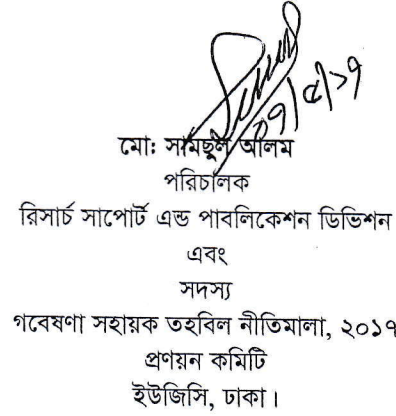 ০৭/৫/১৭
মো: সামছুল আলম
পরিচালক
রিসার্চ সাপোর্ট এন্ড পাবলিকেশন ডিভিশন
এবং
সদস্য
গবেষণা সহায়ক তহবিল নীতিমালা, ২০১৭
প্রণয়ন কমিটি
ইউজিসি, ঢাকা।